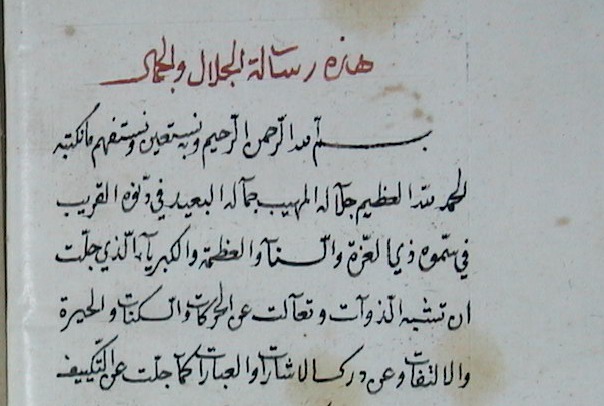 هذه رسالة الجلال والجمال
بسم الله الرحمن الرحيم وبه نستعين ونستفهم ما نكتبه
الحمد لله العظيم جلاله المهيب جماله البعيد في دنوه القريب
في سموه ذي العزة والسناء والعظمة والكبرياء الذي جلت
ان تشبه الذوات وتعالت عن الحركات والسكنات والحيرة
والالتفات وعن درك الاشارات والعبارات كما جلت عن التكييف